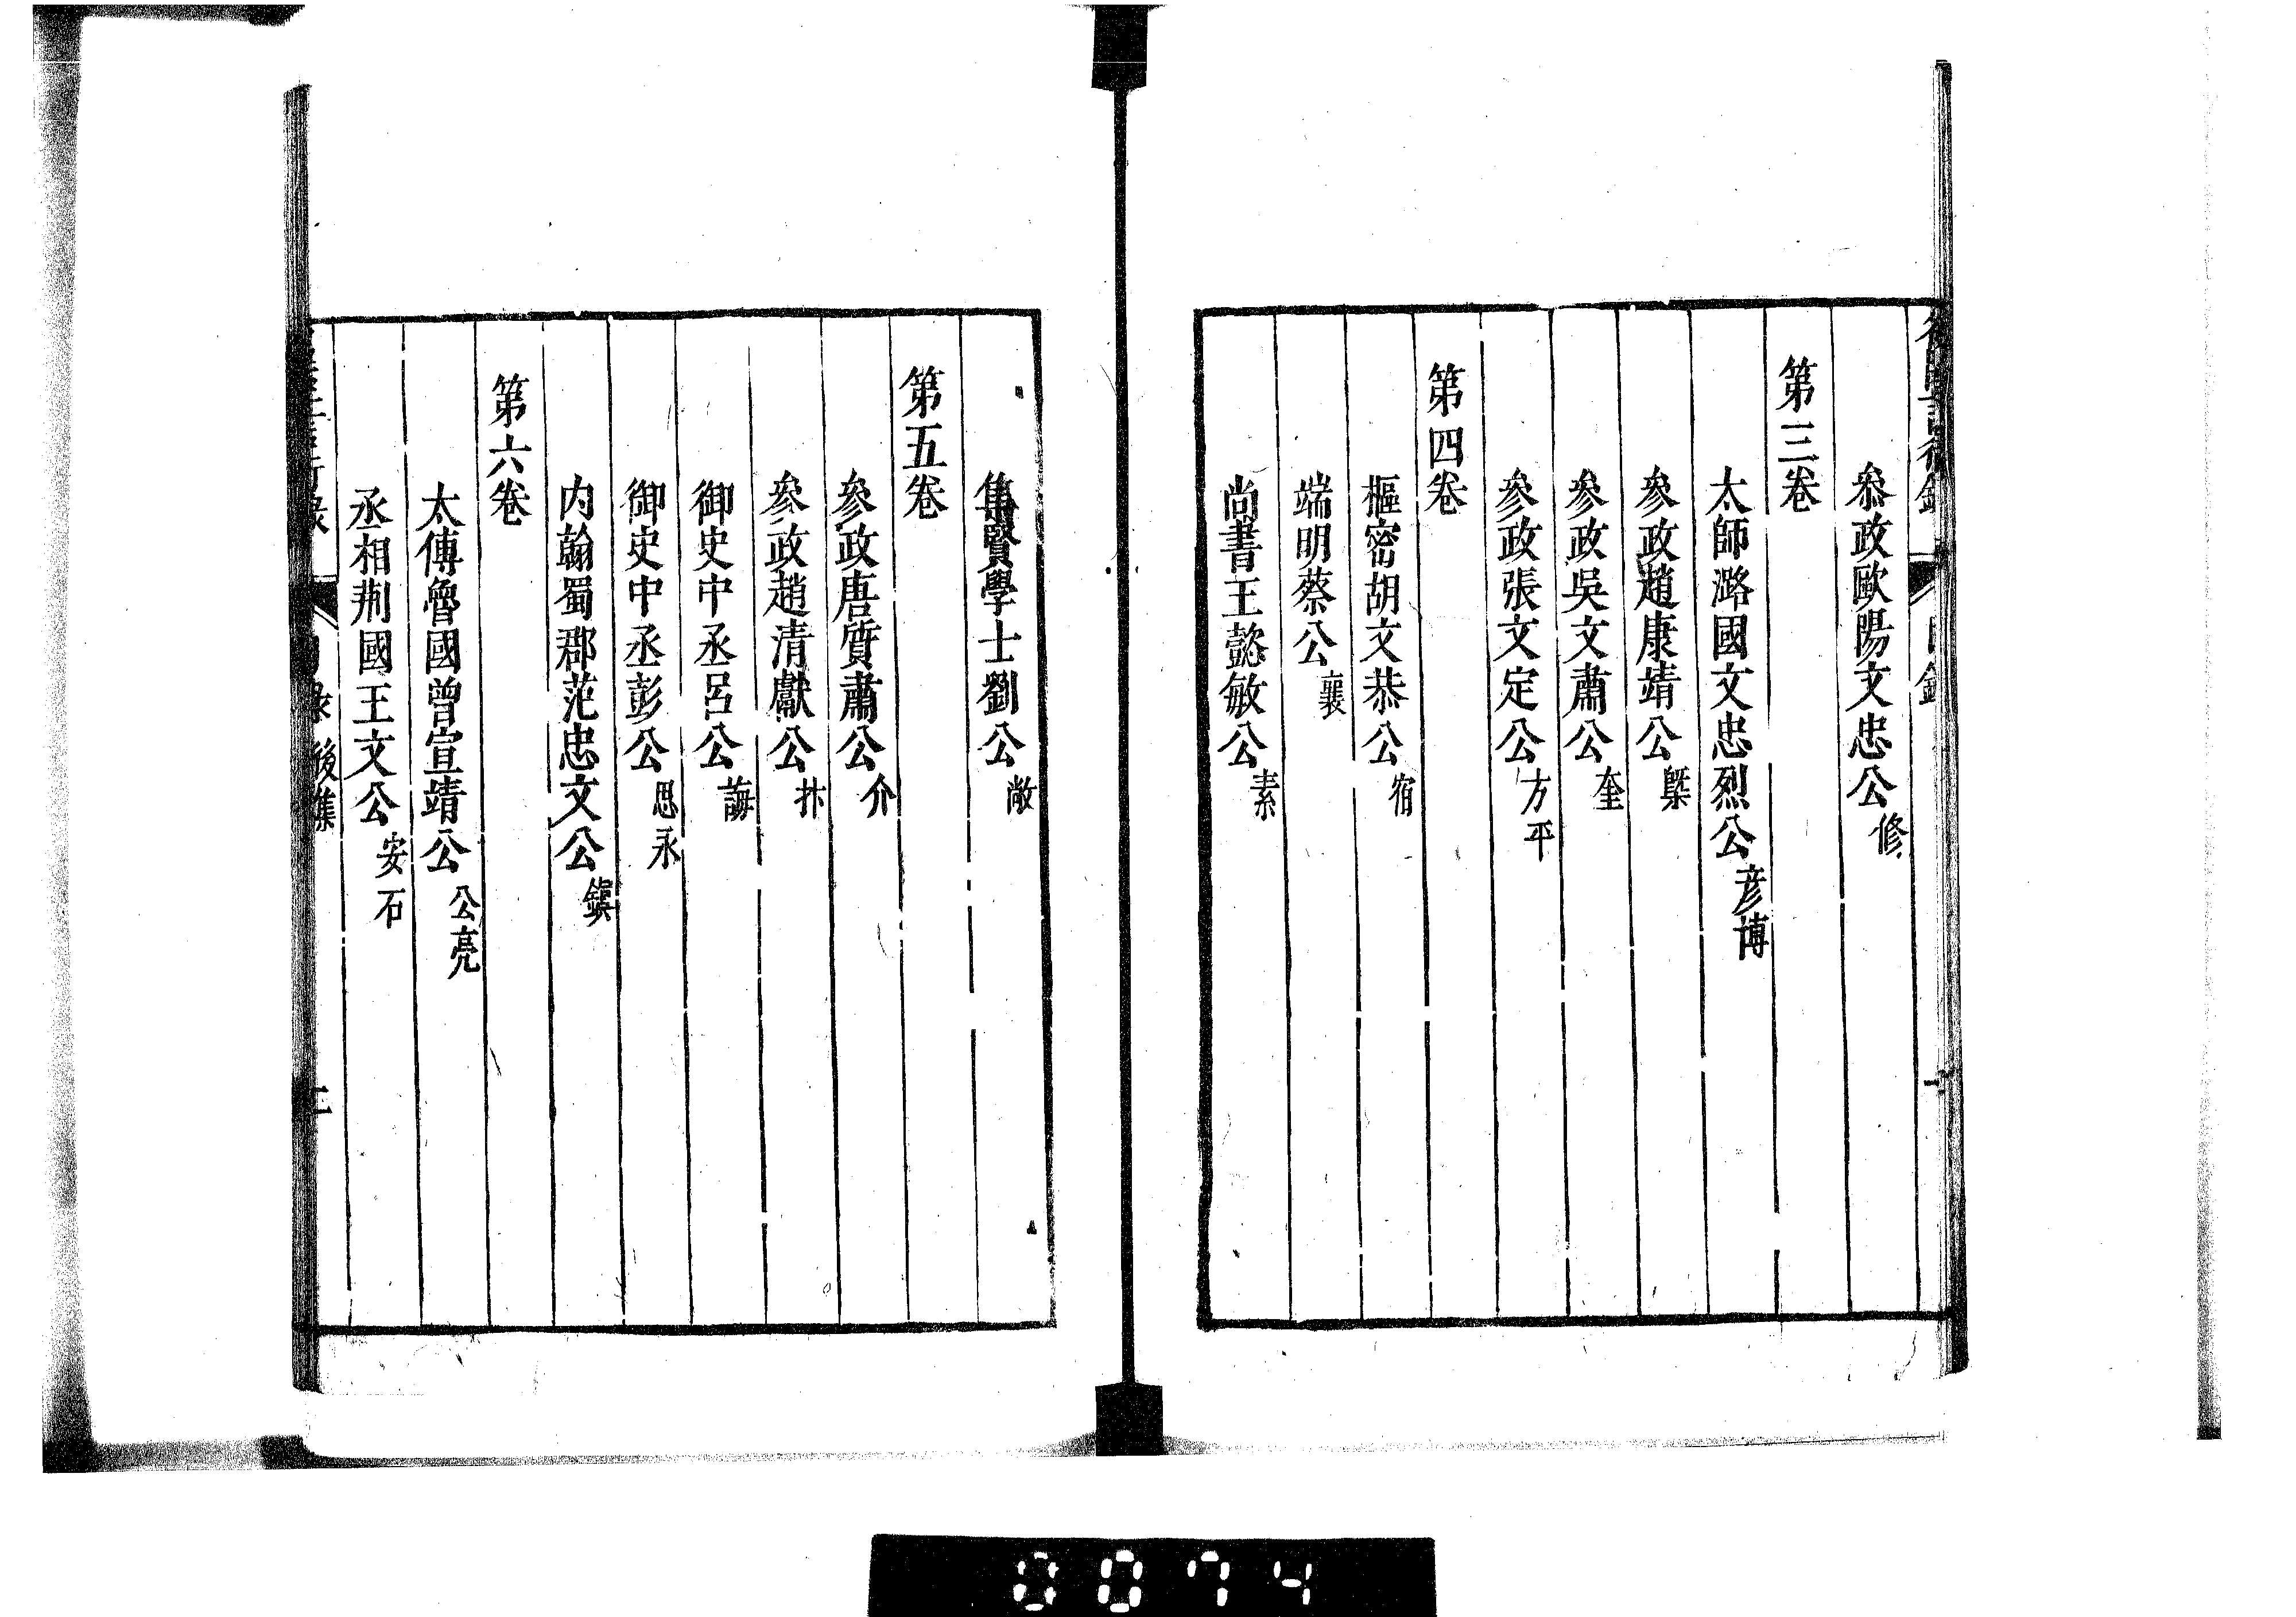 參政歐陽文忠公修
第三卷
太師潞國文忠烈公彦博
參政趙康靖公槩
參政吳文肅公奎
參政張文定公方平
第四卷
樞密胡文恭公宿
端明蔡公襄
尚書王懿敏公素
集賢學士劉公敞
第五卷
參政唐質肅公介
參政趙清獻公抃
御史中丞呂公誨
御史中丞彭公思永
内翰蜀郡范忠文公鎮
第六卷
太傅魯國曾宣靖公公亮
丞相荆國王文公安石
後集
0074